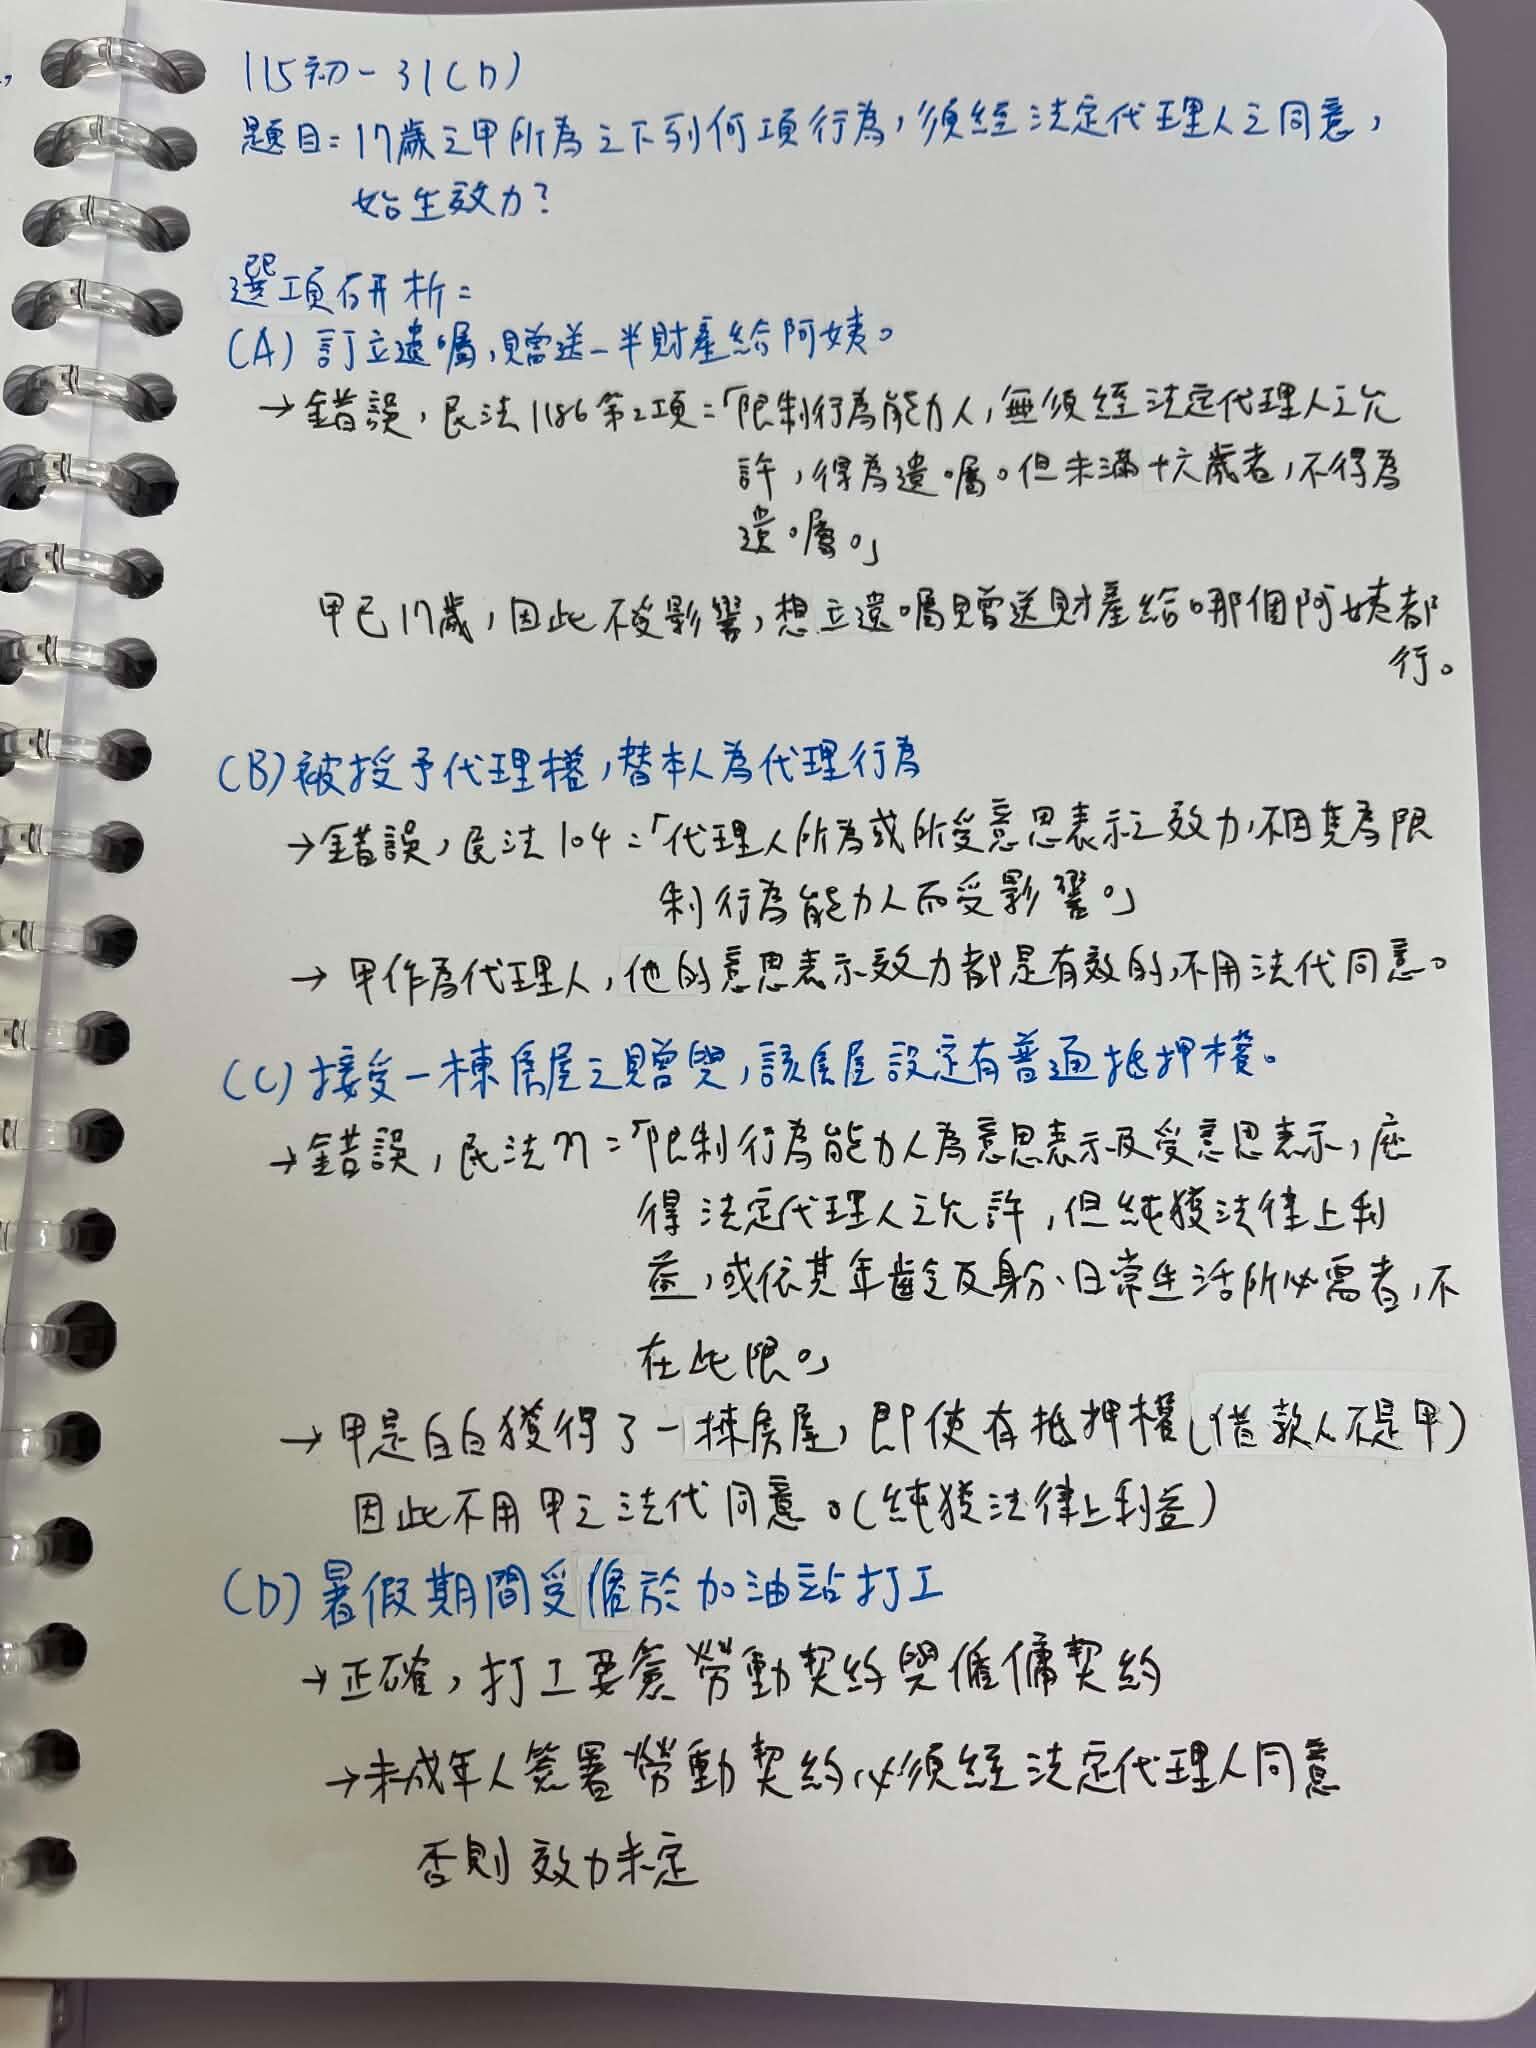 115初-31(D)
題目=17歲之甲所為之下列何項行為,須經法定代理人之同意,
始生效力?
選項研析=
(A)訂立遺囑,贈送一半財產給阿姨。
→錯誤,民法1186第2項=「限制行為能力人,無須經法定代理人之允
許,得為遺囑。但未滿十六歲者,不得為
遺囑。」
甲已17歲,因此不受影響,想立遺囑贈送財產給哪個阿姨都
行。
(B)被授予代理權,替本人為代理行為
→錯誤,民法104=「代理人所為或所受意思表示之效力,不因其為限
制行為能力人而受影響。」
→甲作為代理人,他的意思表示效力都是有效的,不用法代同意。
(C)接受一棟房屋之贈與,該房屋設定有普通抵押權。
→錯誤,民法77=「限制行為能力人為意思表示及受意思表示,應
得法定代理人之允許,但純獲法律上利
益,或依其年齡及身分、日常生活所必需者,不
在此限。」
→甲是白白獲得了一棟房屋,即使有抵押權(借款人不是甲)
因此不用甲之法代同意。(純獲法律上利益)
(D)暑假期間受僱於加油站打工
→正確,打工要簽勞動契約與僱傭契約
→未成年人簽署勞動契約必須經法定代理人同意
否則效力未定